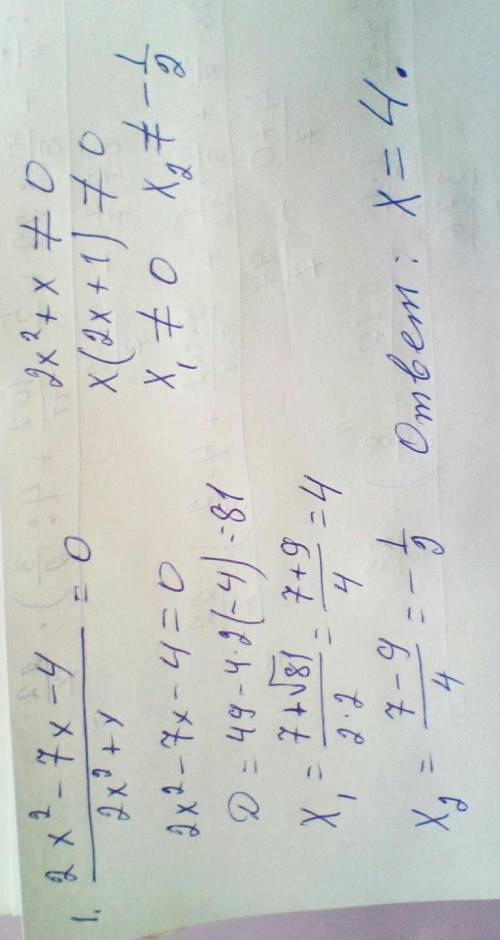 1. (2x² - 7x - 4)/(2x² + x) = 0
2x² + x ≠ 0
x(2x + 1) ≠ 0
x₁ ≠ 0 x₂ ≠ -1/2
2x² - 7x - 4 = 0
D = 49 - 4·2(-4) = 81
x₁ = (7+√81)/(2·2) = (7+9)/4 = 4
x₂ = (7-9)/4 = -1/2
Ответ: x = 4.